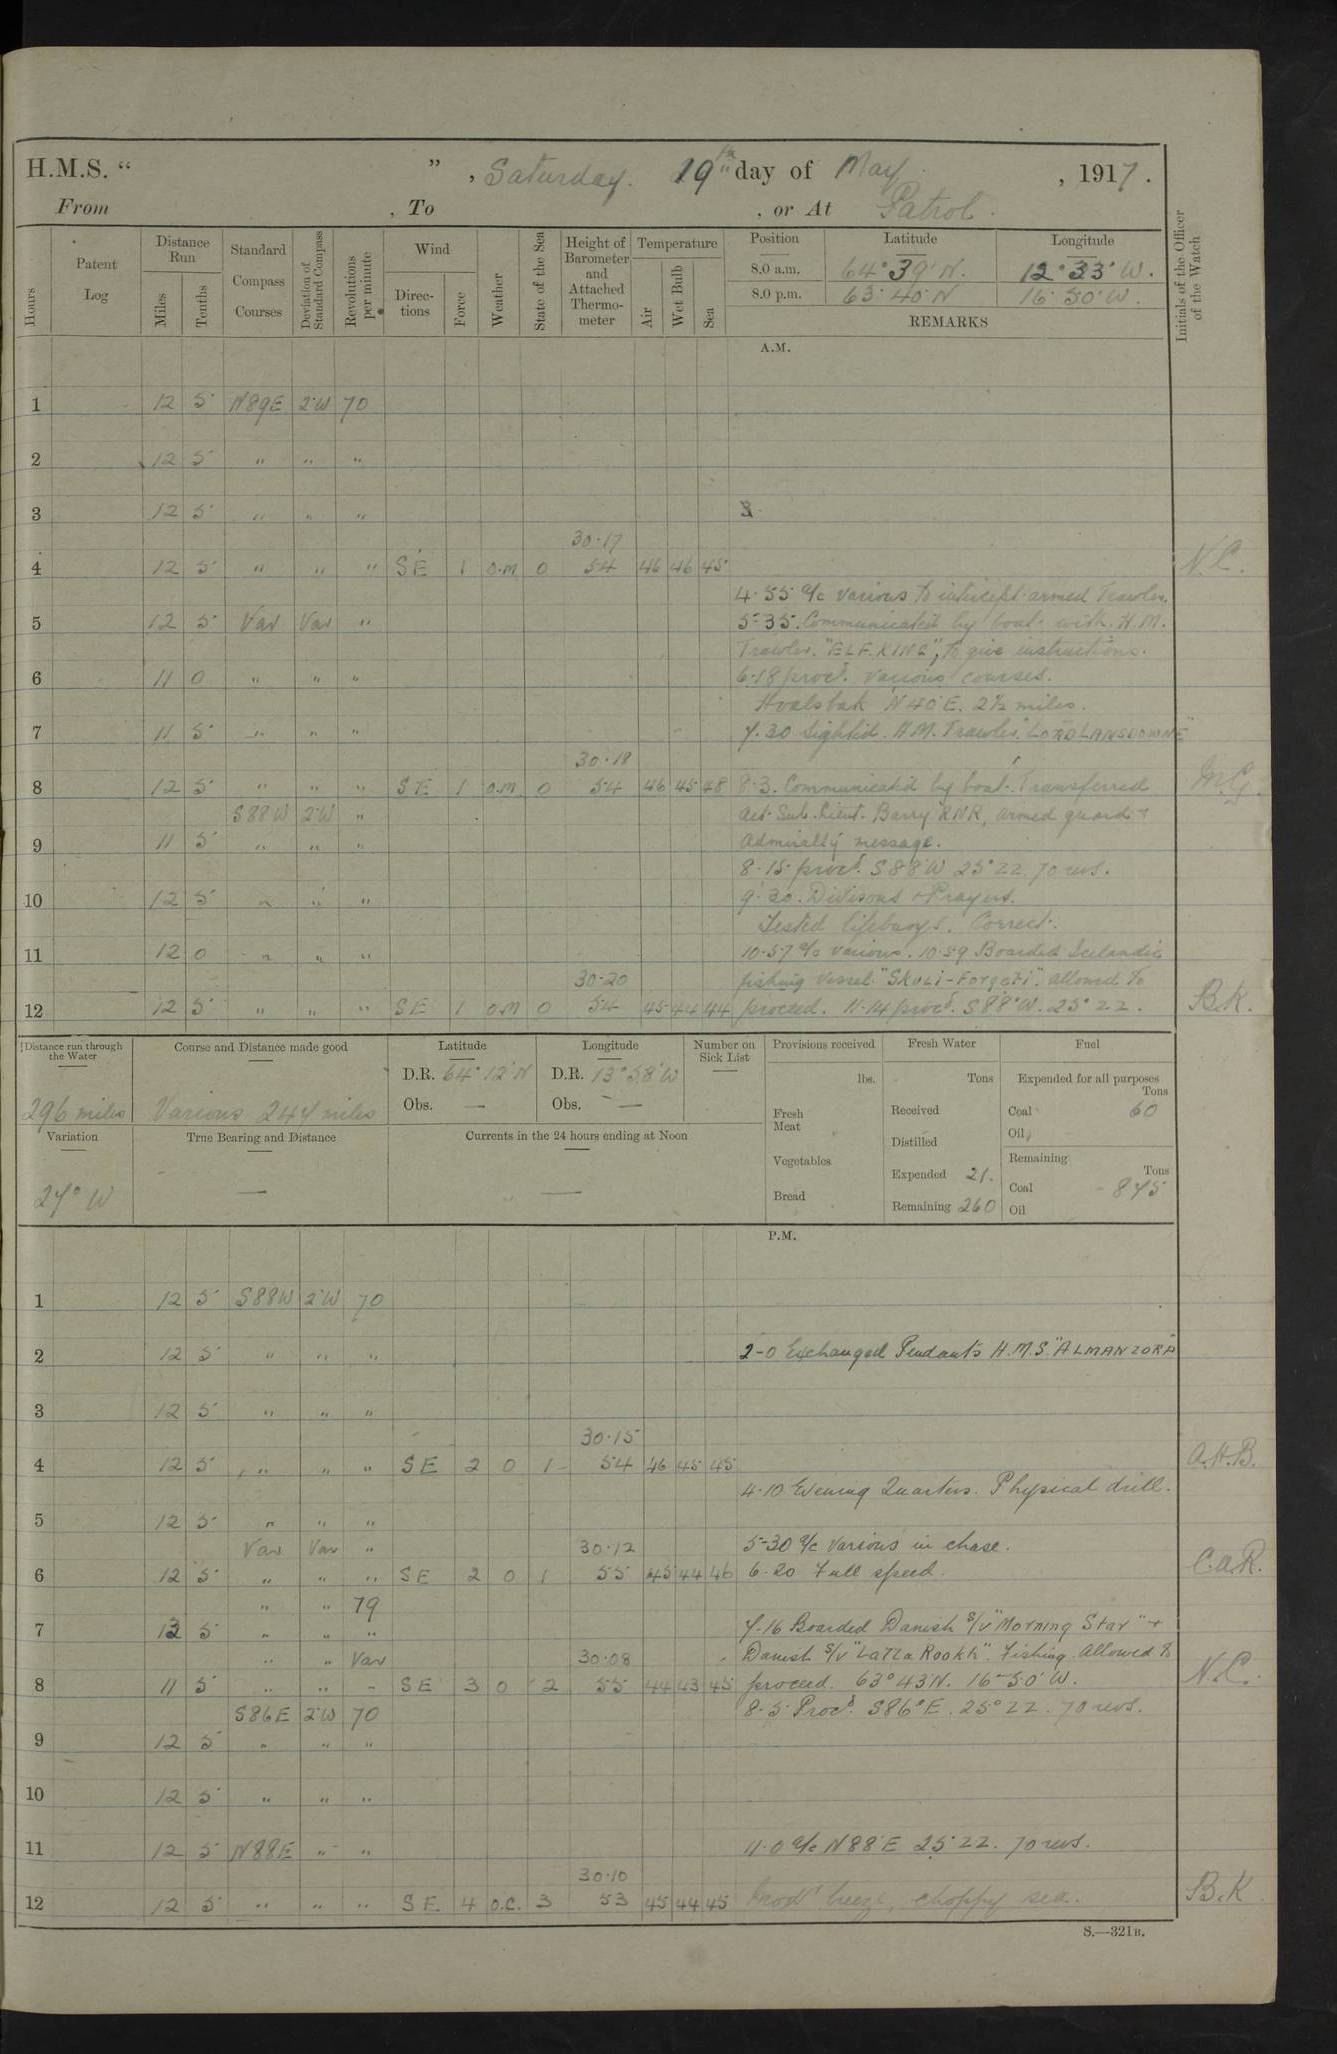 H.M.S. “ ” , Saturday. 19th day of May , 1917.
From , To , or At Patrol.
Hours
Patent Log
Distance Run
Miles
Tenths
Standard Compass Courses
Deviation of Standard Compass
Revolutions per minute
Wind
Directions
Force
Weather
State of the Sea
Height of Barometer and Attached Thermometer
Temperature
Air
Wet Bulb
Sea
Position Latitude Longitude
8.0 a.m. 64° 39' N. 12° 33' W.
8.0 p.m. 63° 40' N 16° 50' W.
REMARKS
Initials of the Officer of the Watch
A.M.
1 12 5 N89E 2°W 70
2 12 5 " " "
3 12 5 " " "
30.17
4 12 5 " " " SE 1 O.M 0 54 46 46 45 N.C.
4.55 a/c various to intercept armed Trawler.
5 12 5 Var Var " 5-35. Communicated by boat with H.M.
Trawler. "ELF KING", to give instructions.
6 11 0 " " " 6.18 procd. various courses.
Hvalsbak N40°E. 2½ miles.
7 11 5 " " " 7.30 Sighted H.M. Trawler "LORD LANSDOWNE"
30.18
8 12 5 " " " SE 1 O.M. 0 54 46 45 48 8.3. Communicated by boat. Transferred
S88W 2°W " Act. Sub. Lieut. Barry RNR, armed guard +
9 11 5 " " " Admiralty message.
8.15 procd. S88°W 25° ZZ 70 revs.
10 12 5 " " " 9.30. Divisions + Prayers.
Tested lifebuoys. Correct.
11 12 0 " " " 10-57 a/c various. 10.59 Boarded Icelandic
30.20 fishing vessel "SKULI-Forgeti". allowed to
12 12 5 " " " SE 1 O.M 0 54 45 44 44 proceed. 11.14 procd. S88°W. 25° ZZ. B.K.
Distance run through the Water
Course and Distance made good
Latitude
Longitude
Number on Sick List
Provisions received
Fresh Water
Fuel
D.R. 64° 12' N D.R. 13° 58' W
lbs. Tons Expended for all purposes Tons
296 miles Various 244 miles
Obs. — Obs. —
Fresh Meat
Received
Coal 60
Oil
Variation
True Bearing and Distance
Currents in the 24 hours ending at Noon
Distilled
Vegetables
Remaining Tons
Expended 21.
Coal 845
27° W — —
Bread
Remaining 260
Oil
P.M.
1 12 5 S88W 2°W 70
2 12 5 " " " 2-0 Exchanged Pendants H.M.S. "ALMANZORA"
3 12 5 " " "
30.15
4 12 5 " " " SE 2 0 1 54 46 45 45 A.H.B.
4.10 Evening Quarters. Physical drill.
5 12 5 " " "
Var Var " 30.12 5-30 a/c various in chase.
6 12 5 " " " SE 2 0 1 55 45 44 46 6.20 Full speed. C.a.R.
" " 79
7 13 5 " " " 7.16 Boarded Danish S/V "Morning Star" +
" " Var 30.08 Danish S/V "Lalla Rookh". Fishing. Allowed to
8 11 5 " " " SE 3 0 2 55 44 43 45 proceed. 63° 43' N. 16° 50' W. N.C.
S86E 2°W 70 8.5 Procd. S86°E. 25° ZZ. 70 revs.
9 12 5 " " "
10 12 5 " " "
11 12 5 N88E " " 11.0 a/c N88°E 25° ZZ. 70 revs.
30.10
12 12 5 " " " SE 4 O.C. 3 53 45 44 45 Modt breeze, choppy sea. B.K
S.—321B.